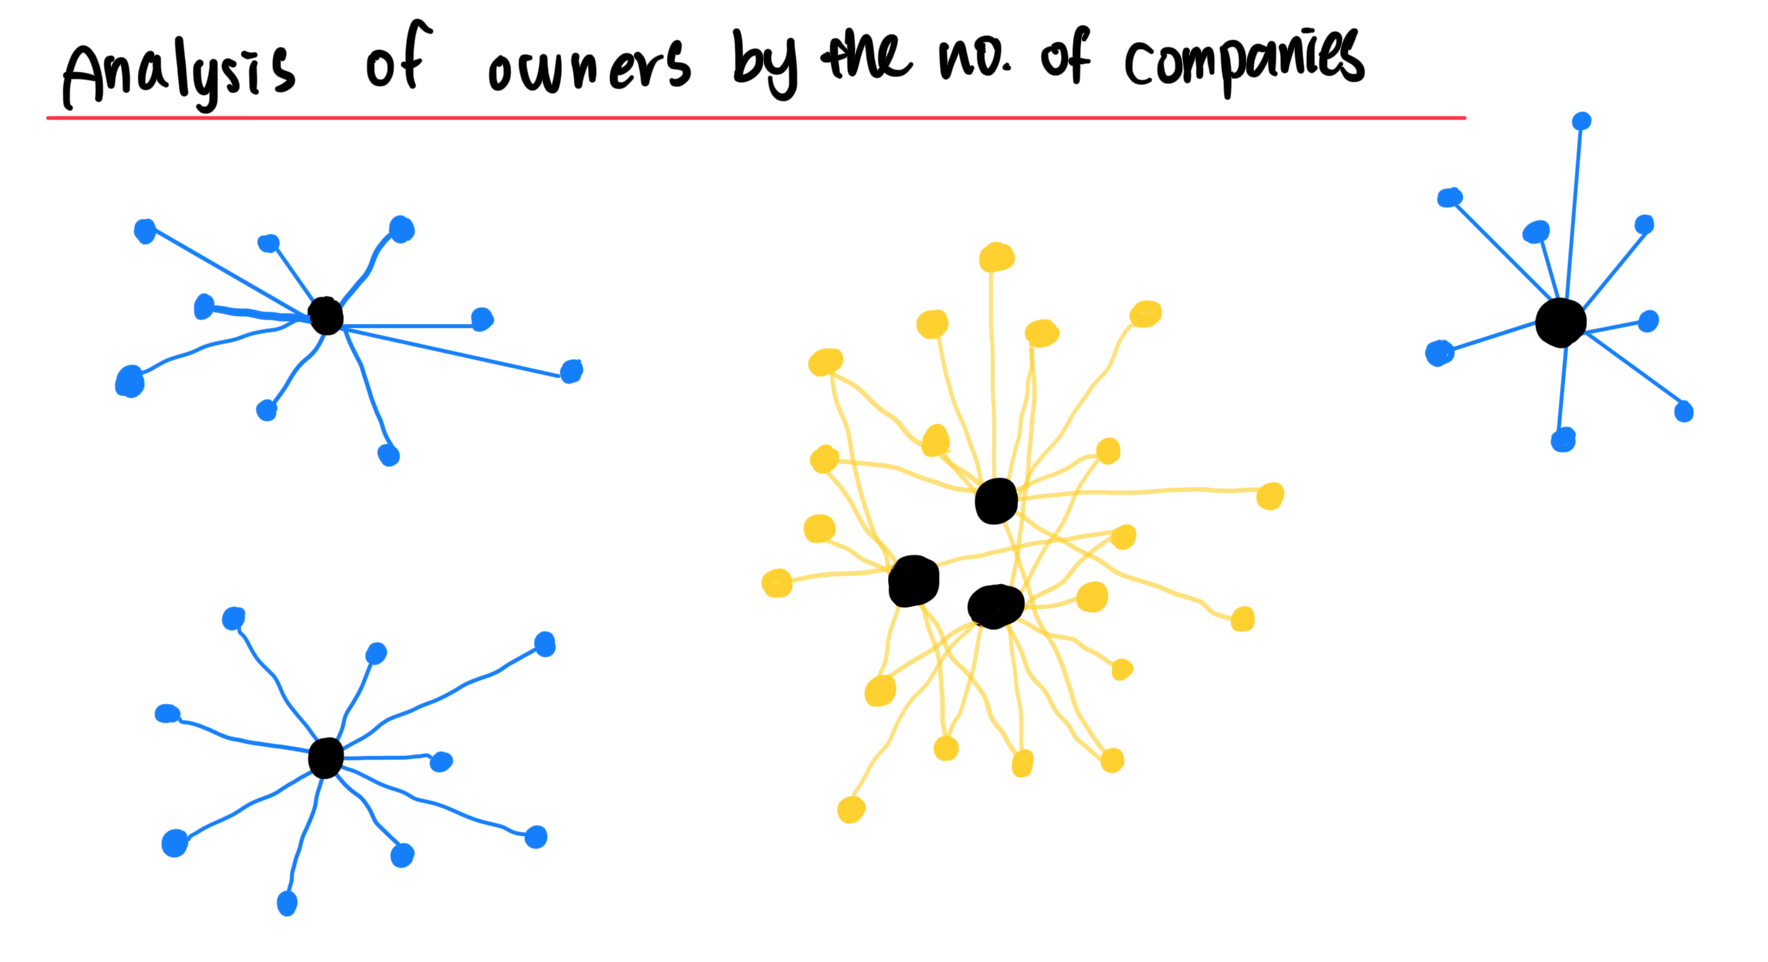 Analysis of owners by the no. of companies